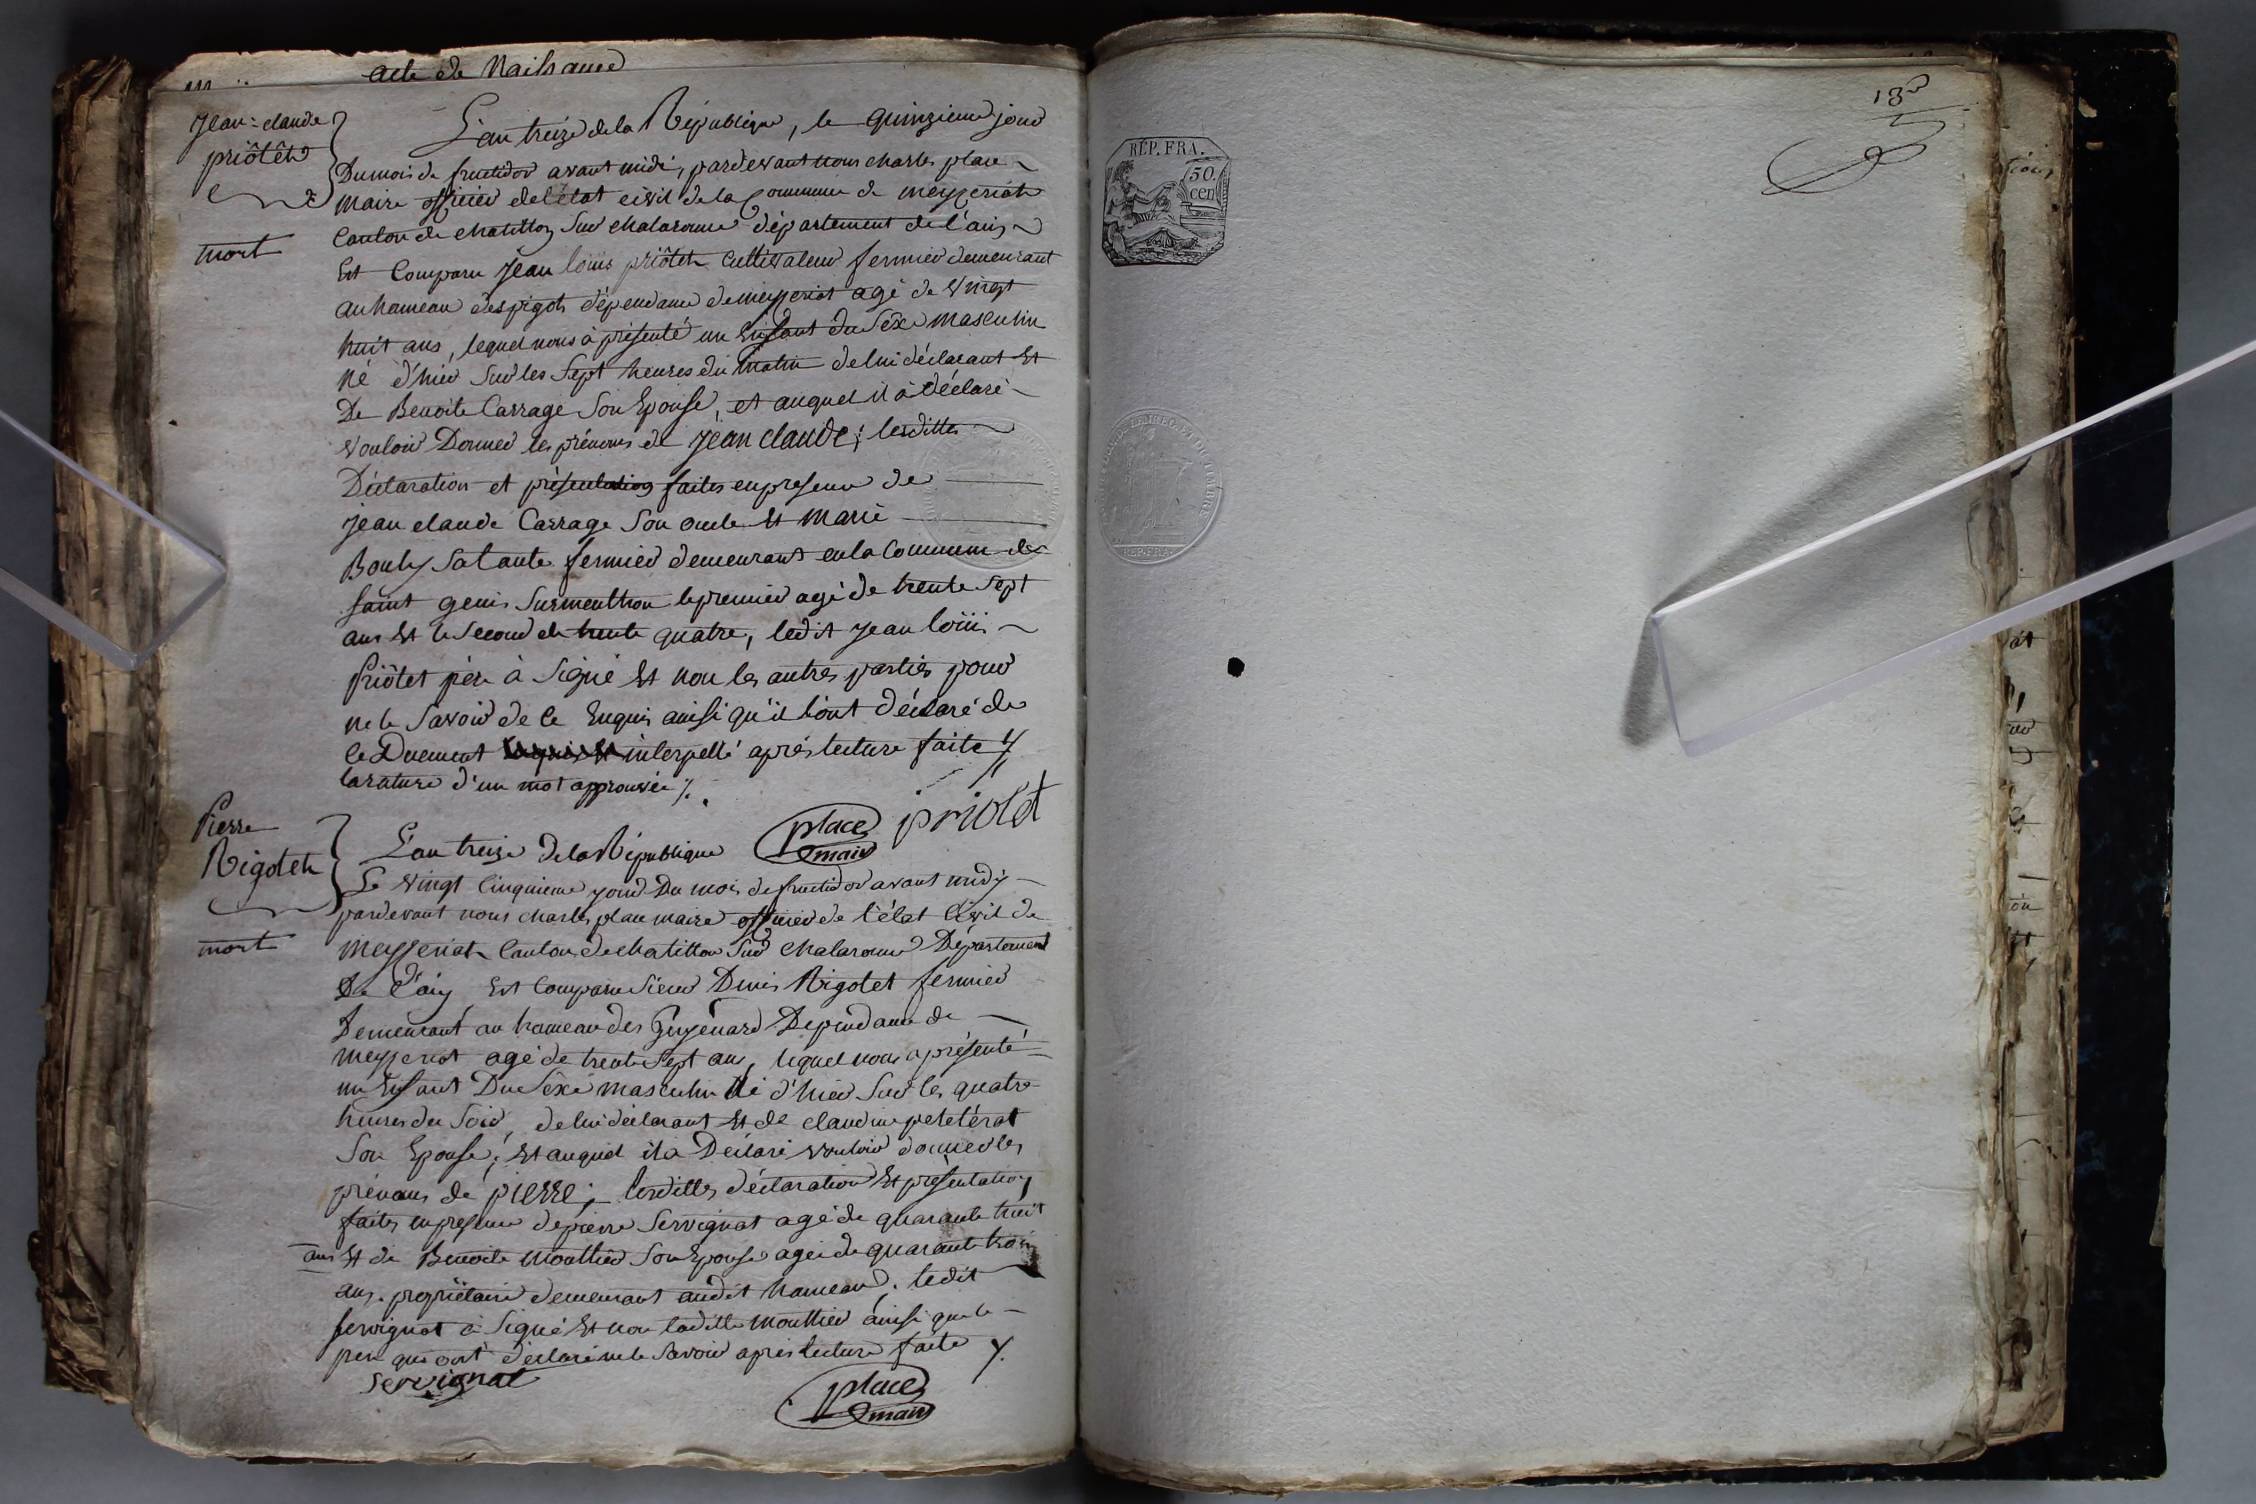 acte de Naissance
Jean-claude
priôtet
mort
L'an treize de la République, le quinzieme jour
Du mois de fructidor avant midi, pardevant nous charles place
maire officier de l'état civil de la Commune de meyzeriat
Canton de chatillon Sur chalaronne département de l'ain
Est Comparu Jean loüis priôtet Cultivateur fermier demeurant
au hameau des pigots dépendance de meyzeriat agé de vingt
huit ans, lequel nous à présenté un Enfant du Sèxe masculin
né d'hier Sur les Sept heures du matin de lui déclarant Et
De Benoite Carrage Son Epouse, et auquel il à déclaré
vouloir Donner les prénoms de Jean claude; lesdittes
Déclaration et présentation faites en présence de
Jean claude Carrage Son oncle Et marie
Bouly Sa tante fermier demeurant en la Commune de
Saint genis Sur menthon le premier agé de trente Sept
ans Et le Second de trente quatre, ledit Jean loüis
Priôtet père à Signé Et non les autres parties pour
ne le Savoir de ce Enquis ainsi qu'il l'ont déclaré de
ce Duement interpellé après lecture faite
la rature d'un mot approuvée
place
maire
priolet
Pierre
Rigotet
mort
L'an treize de la République
Le vingt Cinquieme jour Du mois de fructidor avant midy
pardevant nous charles place maire officier de l'état Civil de
meyzeriat Canton de chatillon Sur chalaronne Département
De l'ain Est Comparu Sieur Denis Rigotet fermier
Demeurant au hameau des Guyenard Dependance de
meyzeriat agé de trente Sept ans, lequel nous a présenté
un Enfant Du Sèxe masculin Né d'hier Sur les quatre
heures du Soir, de lui déclarant Et de claudine peletérat
Son Epouse; Et auquel il a Déclaré vouloir donner les
prénoms de pierre; lesdittes déclaration Et présentation
faites en présence de pierre Servignat agé de quarante huit
ans Et de Benoite Mouthier Son Epouse agée de quarante trois
ans. propriétaire demeurant audit hameau; ledit
Servignat à Signé Et non laditte mouthier ainsi que le
pere qui ont déclaré ne le Savoir après lecture faite
Servignat
place
maire
RÉP. FRA.
50.
cen
REP. FRA.